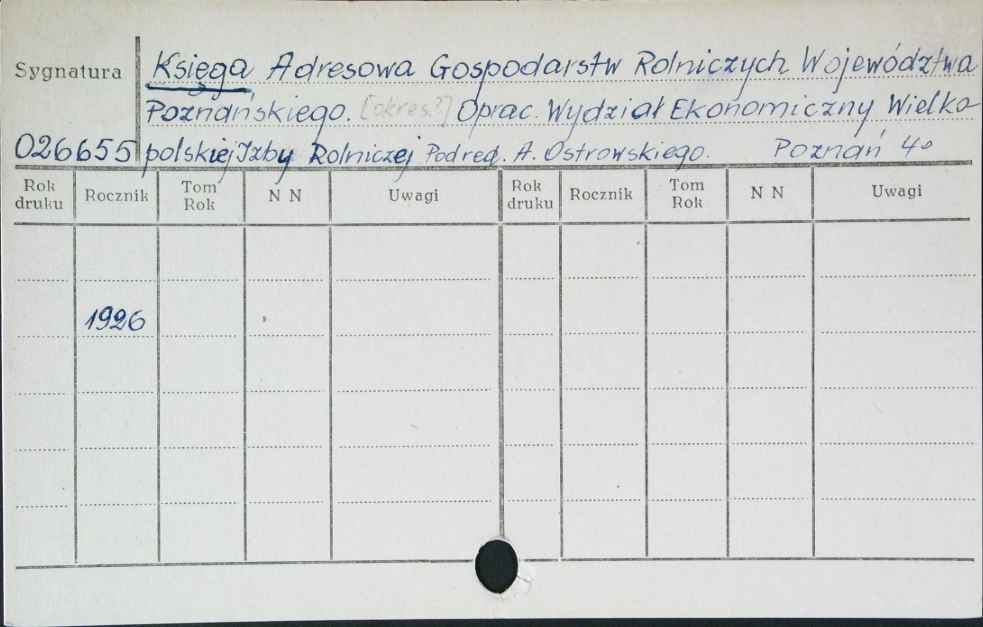 Sygnatura Księga Adresowa Gospodarstw Rolniczych Województwa
Poznańskiego. [okres?] Oprac. Wydział Ekonomiczny Wielko-
026655 polskiej Izby Rolniczej Pod red. A. Ostrowskiego. Poznań 4°
Rok druku Rocznik Tom Rok N N Uwagi Rok druku Rocznik Tom Rok N N Uwagi
1926